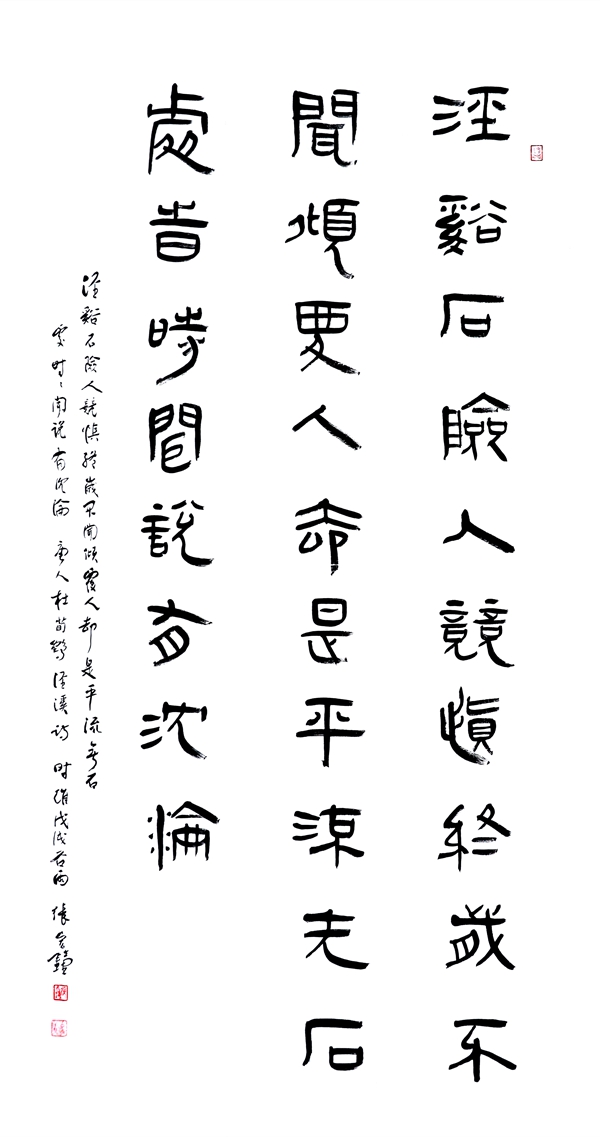 涇谿石險人競慎終歲不
聞傾覆人却是平流无石
處旹時聞說有沈淪
涇谿石險人競慎終歲不聞傾覆人却是平流無石
處時〻聞說有沈淪 唐人杜荀鶴涇溪詩 时維戊戌谷雨 張